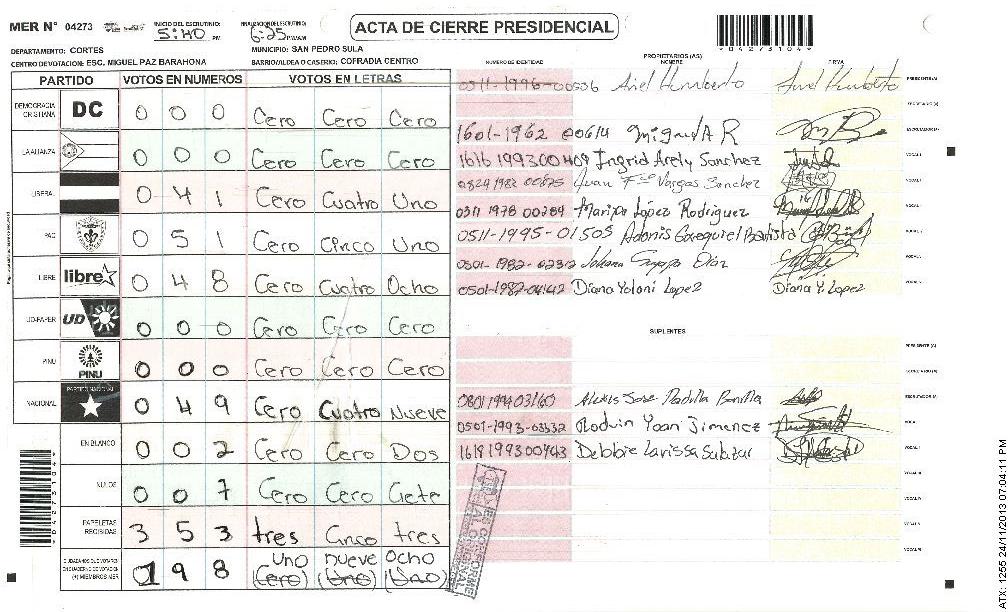 MER N° 04273 INICIO DEL ESCRUTINIO: 5:40 PM FINALIZACION DEL ESCRUTINIO: 6:25 P.M/A.M ACTA DE CIERRE PRESIDENCIAL
DEPARTAMENTO: CORTES MUNICIPIO: SAN PEDRO SULA
CENTRO DE VOTACION: ESC. MIGUEL PAZ BARAHONA BARRIO/ALDEA O CASERIO: COFRADIA CENTRO
PARTIDO VOTOS EN NUMEROS VOTOS EN LETRAS
DEMOCRACIA CRISTIANA DC 0 0 0 Cero Cero Cero
LA ALIANZA 0 0 0 Cero Cero Cero
LIBERAL 0 4 1 Cero Cuatro Uno
PAC 0 5 1 Cero Cinco Uno
LIBRE libre 0 4 8 Cero Cuatro Ocho
UD-FAPER UD 0 0 0 Cero Cero Cero
PINU PINU 0 0 0 Cero Cero Cero
NACIONAL PARTIDO NACIONAL 0 4 9 Cero Cuatro Nueve
EN BLANCO 0 0 2 Cero Cero Dos
NULOS 0 0 7 Cero Cero Ciete
PAPELETAS RECIBIDAS 3 5 3 tres Cinco tres
CIUDADANOS QUE VOTARON EN CUADERNO DE VOTACION (+) MIEMBROS MER 1 9 8 Uno nueve Ocho
(Cero) (Uno) (Uno)
PROPIETARIOS (AS)
NUMERO DE IDENTIDAD NOMBRE FIRMA
0511-1996-00506 Ariel Humberto Ariel Humberto PRESIDENTE (A)
SECRETARIO (A)
1601-1962 00614 Miguel A R ESCRUTADOR (A)
1616 1993 00409 Ingrid Arely Sanchez VOCAL I
0824 1982 00675 Juan Fco Vargas Sanchez
0311 1978 00284 Maripa López Rodriguez
0511-1995-01505 Adonis Bautista
0501-1982-02312 Johana Diaz
0501-1987-04142 Diana Yoloni Lopez Diana Y. Lopez
SUPLENTES
PRESIDENTE (A)
SECRETARIO (A)
0801 1994 03160 Alexis Jose Padilla Bonilla ESCRUTADOR (A)
0501-1993-03332 Rodvin Yoan Jimenez
1618 1993 00743 Debbie Larissa Salazar
04273104
04273104
ATX: 1255 24/11/2013 07:04:11 PM